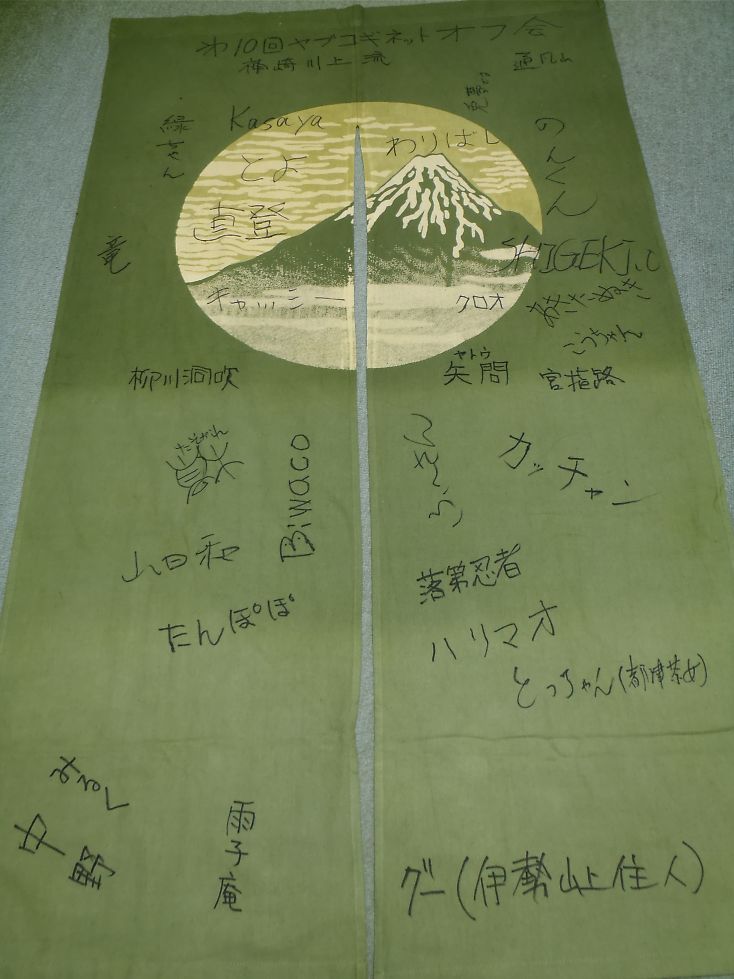 第10回ヤブコギネットオフ会
椿崎川上流
通風山
緑ちゃん
Kasaya
わりばし
のんくん
とよ
直登
竜
SHIGEKI.U
キャッシー
クロオ
こうちゃん
柳川洞吹
ヤトウ
矢問
宮指路
たそがれ
Biwaco
カッチャン
山日和
落第忍者
たんぽぽ
ハリマオ
とっちゃん(都津茶女)
雨子庵
グー(伊勢山上住人)